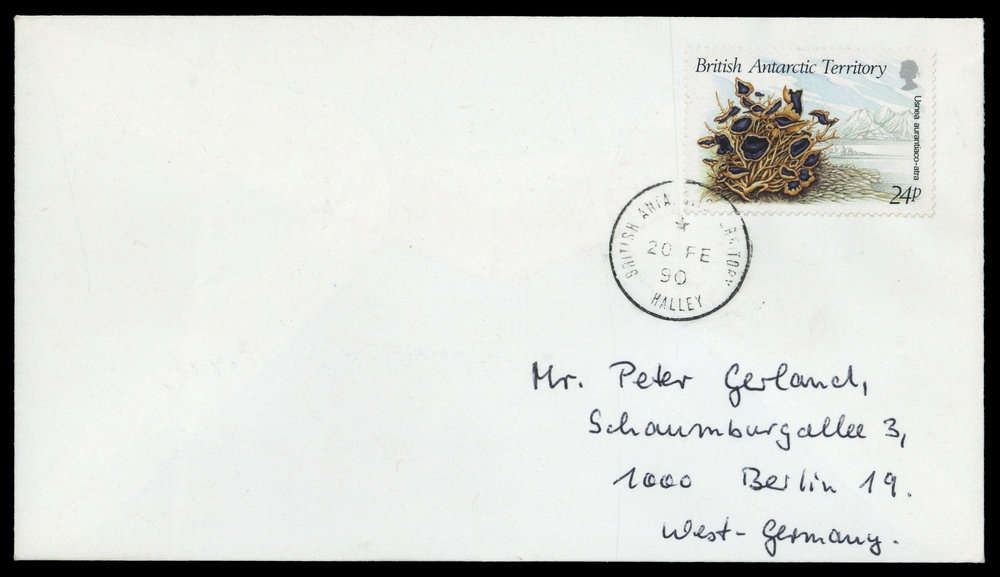 British Antarctic Territory
Usnea aurantiaco-atra
24p
BRITISH ANTARCTIC TERRITORY
20 FE
90
HALLEY
Mr. Peter Gerland,
Schaumburgallee 3,
1000 Berlin 19.
West-Germany.